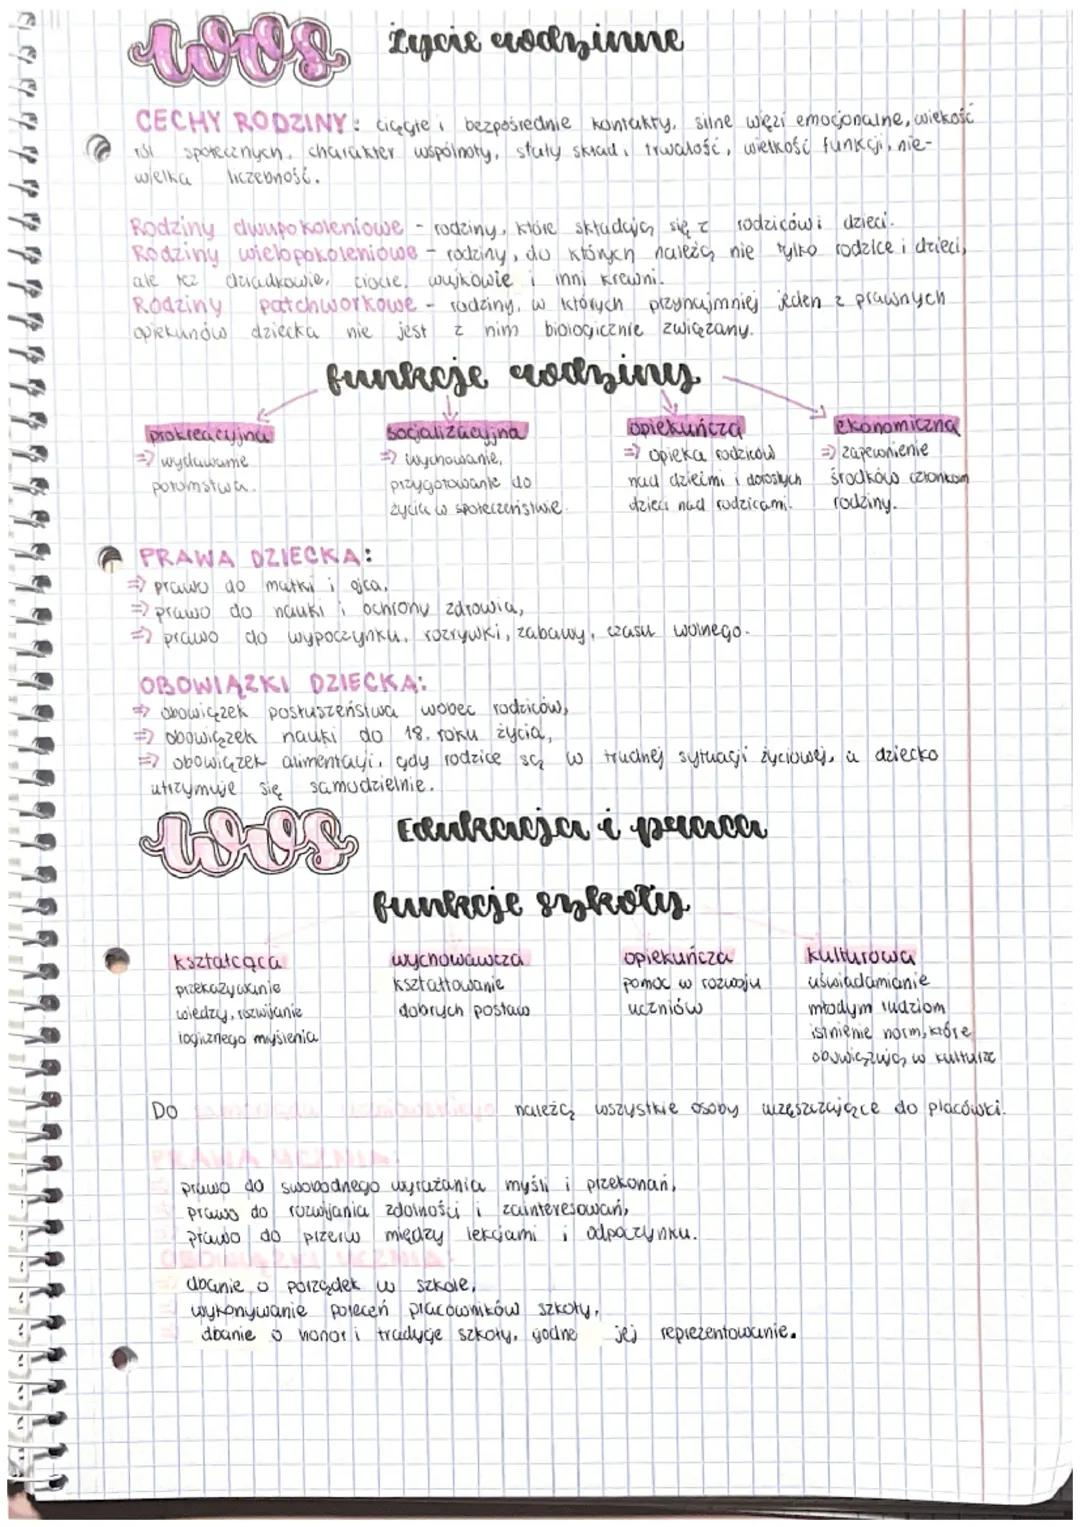 WOS Życie rodzinne
CECHY RODZINY: ciągłe i bezpośrednie kontakty, silne więzi emocjonalne, wiekość
ról społecznych, charakter wspólnoty, stały skład, trwałość, wielkość funkcji, nie-
wielka liczebność.
Rodziny dwupokoleniowe - rodziny, które składają się z rodziców i dzieci.
Rodziny wielopokoleniowe - rodziny, do których należą nie tylko rodzice i dzieci,
ale też dziadkowie, ciocie, wujkowie i inni krewni.
Rodziny patchworkowe - rodziny, w których przynajmniej jeden z prawnych
opiekunów dziecka nie jest z nim biologicznie związany.
funkcje rodziny
prokreacyjna socjalizacyjna opiekuńcza ekonomiczna
=> wydawanie => wychowanie, => opieka rodziców => zapewnienie
potomstwa. przygotowanie do nad dziećmi i dorosłych środków członkom
życia w społeczeństwie. dzieci nad rodzicami. rodziny.
PRAWA DZIECKA:
=> prawo do matki i ojca,
=> prawo do nauki i ochrony zdrowia,
=> prawo do wypoczynku, rozrywki, zabawy, czasu wolnego.
OBOWIĄZKI DZIECKA:
=> obowiązek posłuszeństwa wobec rodziców,
=> obowiązek nauki do 18. roku życia,
=> obowiązek alimentacji, gdy rodzice są w trudnej sytuacji życiowej, a dziecko
utrzymuje się samodzielnie.
WOS Edukacja i praca
funkcje szkoły
kształcąca wychowawcza opiekuńcza kulturowa
przekazywanie kształtowanie pomoc w rozwoju uświadamianie
wiedzy, rozwijanie dobrych postaw uczniów młodym ludziom
logicznego myślenia istnienie norm, które
obowiązują w kulturze
Do należą wszystkie osoby uczęszczające do placówki.
PRAWA UCZNIA:
prawo do swobodnego wyrażania myśli i przekonań,
prawo do rozwijania zdolności i zainteresowań,
prawo do przerw między lekcjami i odpoczynku.
OBOWIĄZKI UCZNIA:
dbanie o porządek w szkole,
wykonywanie poleceń pracowników szkoły,
dbanie o honor i tradycje szkoły, godne jej reprezentowanie.